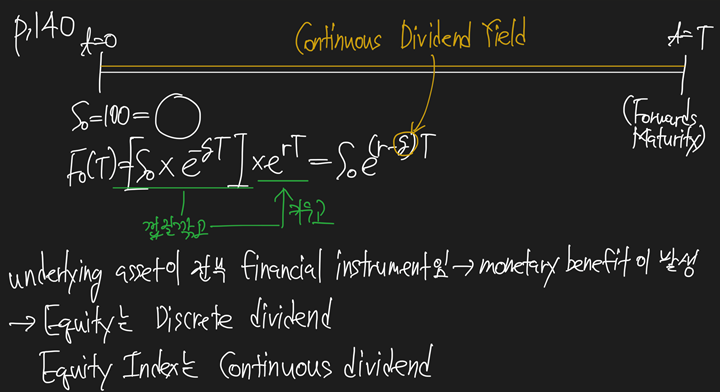 p.140 t=0 Continuous Dividend Yield t=T
S₀=100=
(Forwards Maturity)
F₀(T)=[S₀×e^-δT]×e^rT=S₀e^(r-δ)T
깎고 키우고
underlying asset이 전부 financial instrument임→monetary benefit이 발생
→Equity는 Discrete dividend
Equity Index는 Continuous dividend